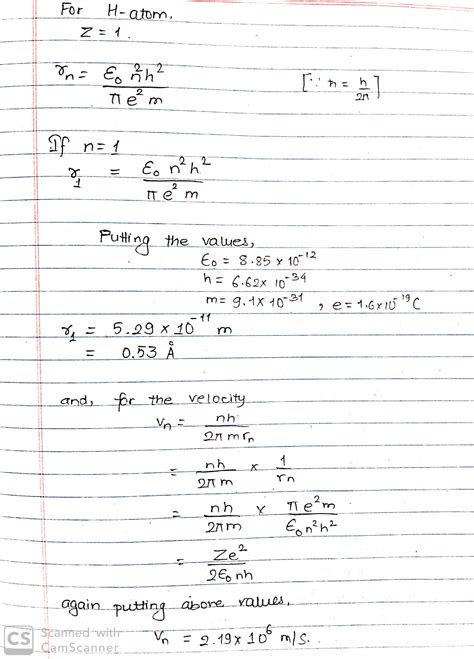 For H-atom,
Z = 1.
rₙ = ε₀ n²h² / πe²m [∵ ħ = h/2π]
If n=1
r₁ = ε₀ n²h² / πe²m
Putting the values,
ε₀ = 8.85 x 10⁻¹²
h = 6.62x 10⁻³⁴
m = 9.1x 10⁻³¹ , e = 1.6x10⁻¹⁹ C
r₁ = 5.29 x 10⁻¹¹ m
= 0.53 Å
and, for the velocity
vₙ = nh / 2πmrₙ
= nh / 2πm x 1 / rₙ
= nh / 2πm x πe²m / ε₀n²h²
= Ze² / 2ε₀nh
again putting above values,
vₙ = 2.19x 10⁶ m/s.
CS Scanned with
CamScanner